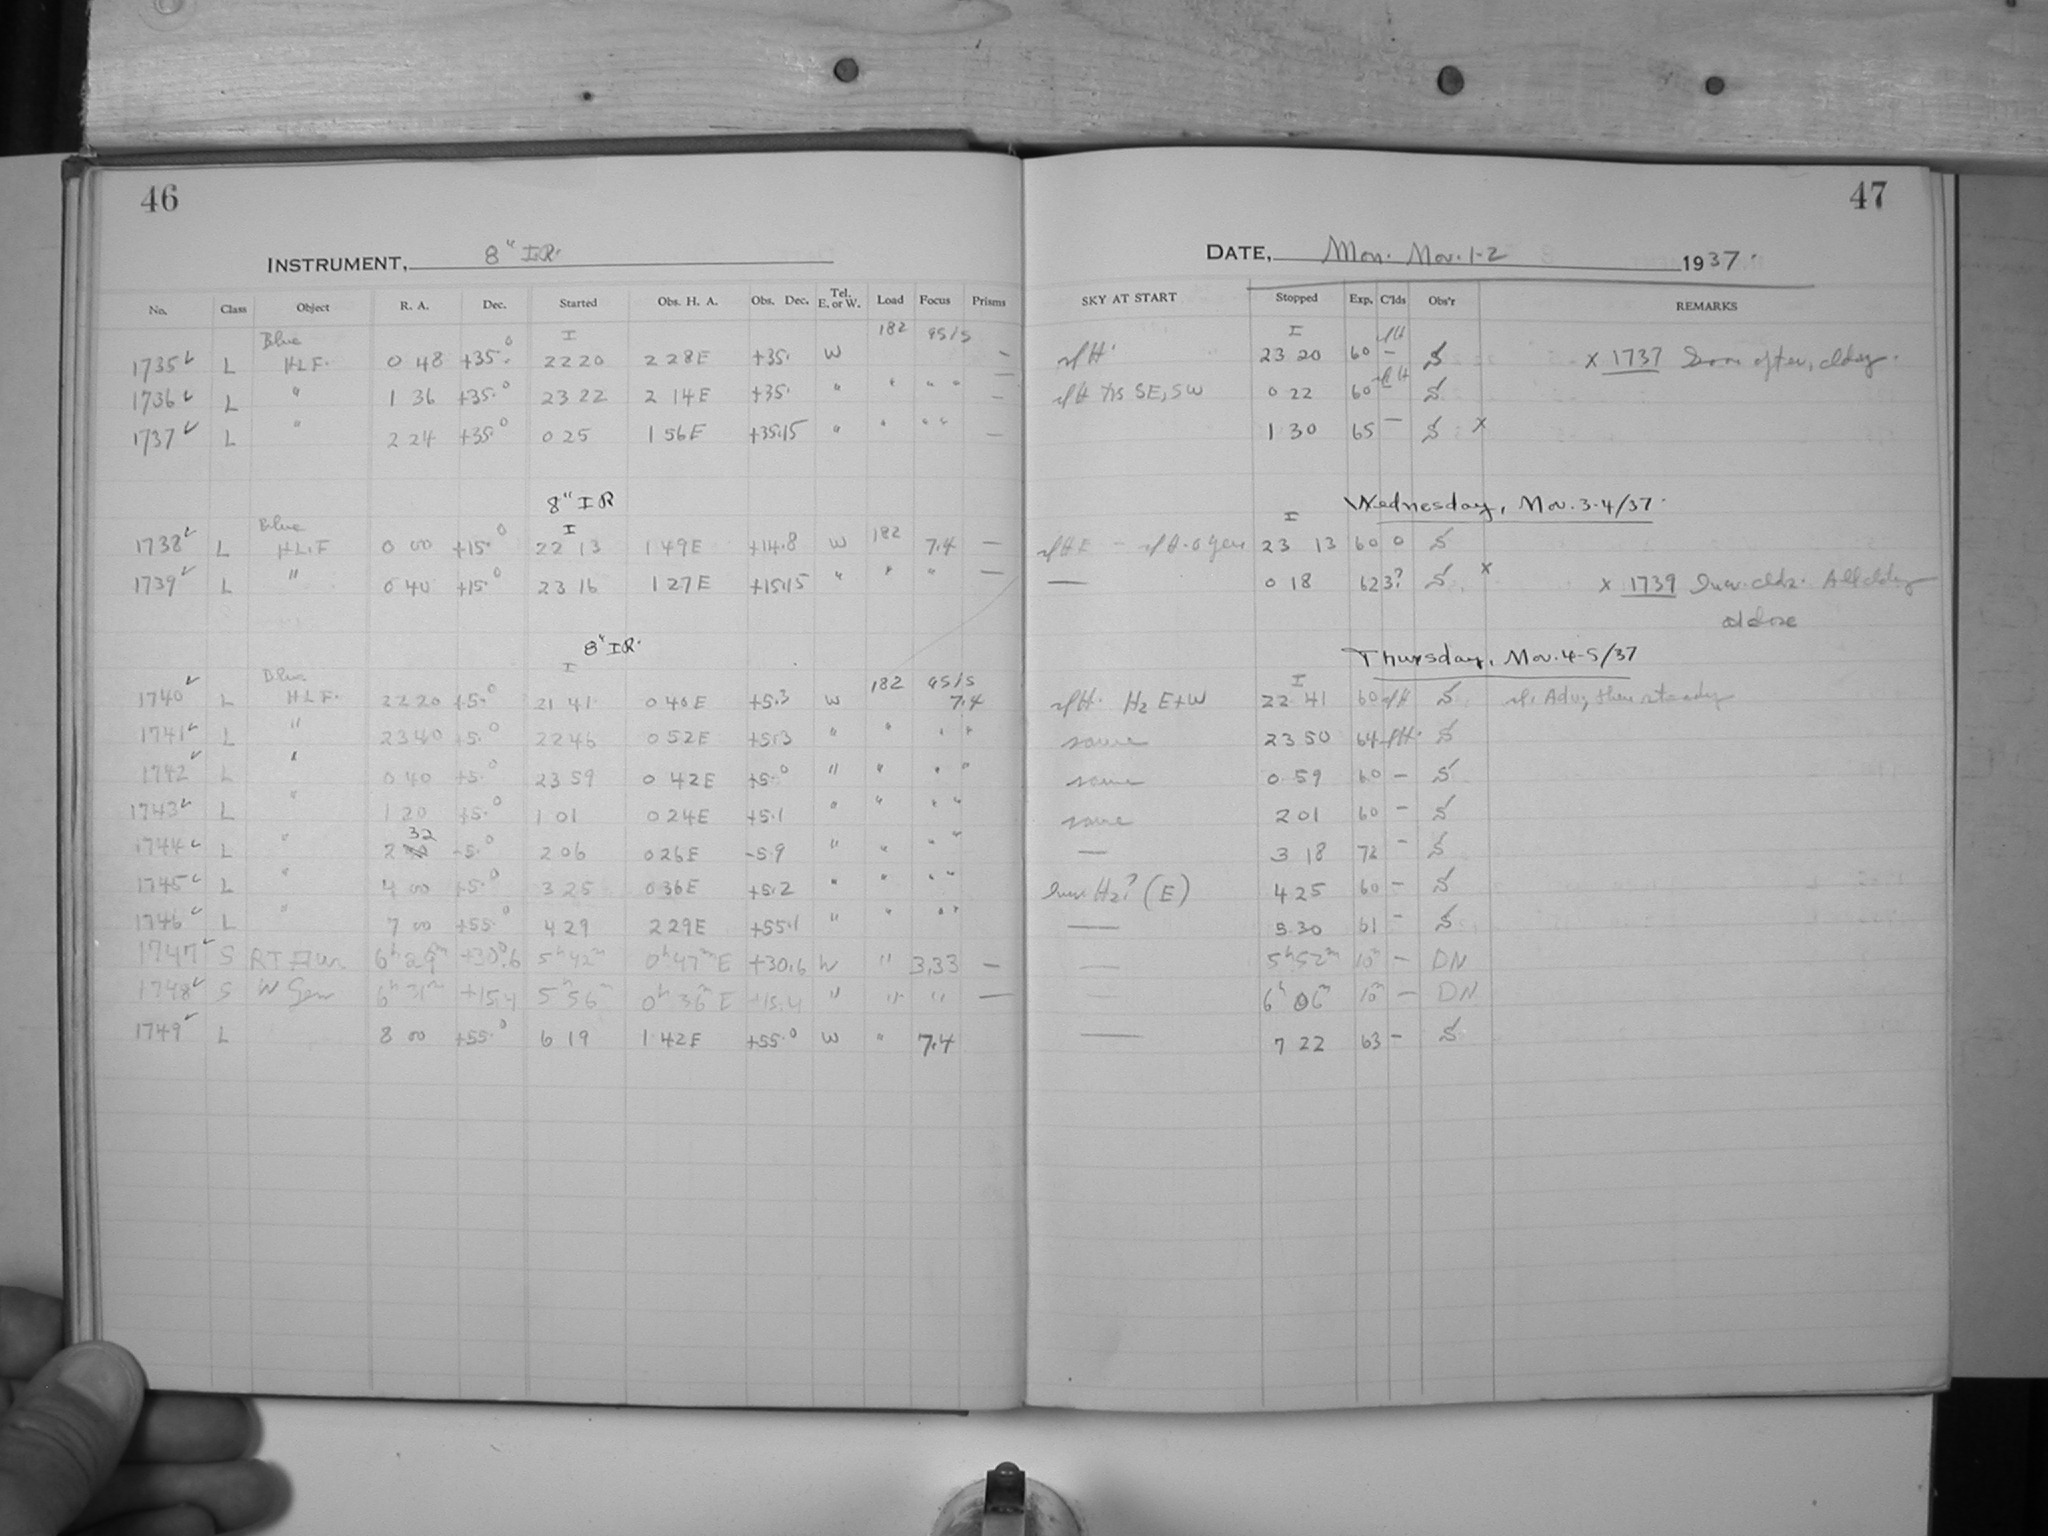 46
47
INSTRUMENT, 8" IR.
DATE, Mon. Nov. 1-2 1937.
No. Class Object R. A. Dec. Started Obs. H. A. Obs. Dec. Tel. E. or W. Load Focus Prisms SKY AT START Stopped Exp. C'lds Obs'r REMARKS
Blue I 182 95/5 I
1735 ✓ L H.L.F. 0 48 +35.0 22 20 2 28E +35. W — 23 20 60 — S x 1737 after, cldy.
1736 ✓ L " 1 36 +35.0 23 22 2 14E +35. " " " " — SE, SW 0 22 60 S
1737 ✓ L " 2 24 +35.0 0 25 1 56E +35.15 " " " " — 1 30 65 — S x
8" IR Wednesday, Nov. 3-4/37.
Blue I 182 I
1738 ✓ L H.L.F 0 00 +15.0 22 13 1 49E +14.8 W 7.4 — 23 13 60 0 S
1739 ✓ L " 0 40 +15.0 23 16 1 27E +15.15 " " " — — 0 18 62 3? S x x 1739 clds. All cldy
at close
8" IR. Thursday, Nov. 4-5/37
Blue I 182 95/5 I
1740 ✓ L H.L.F. 22 20 +5.0 21 41 0 40E +5.3 W 7.4 H2 E+W 22 41 60 S then steady
1741 ✓ L " 23 40 +5.0 22 46 0 52E +5.3 " " " " same 23 50 64 S
1742 ✓ L " 0 40 +5.0 23 59 0 42E +5.0 " " " " same 0 59 60 — S
1743 ✓ L " 1 20 +5.0 1 01 0 24E +5.1 " " " " same 2 01 60 — S
1744 ✓ L " 2 32 -5.0 2 06 0 26E -5.9 " " " " — 3 18 72 — S
1745 ✓ L " 4 00 +5.0 3 25 0 36E +5.2 " " " " H2? (E) 4 25 60 — S
1746 ✓ L " 7 00 +55.0 4 29 2 29E +55.1 " " " " — 5 30 61 — S
1747 ✓ S RT Aur 6h 29m +30.6 5h 42m 0h 47m E +30.6 W " 3.33 — — 5h 52m 10m — DN
1748 ✓ S W Gem 6h 31m +15.4 5h 56m 0h 36m E +15.4 " " " — — 6h 06m 10m — DN
1749 ✓ L 8 00 +55.0 6 19 1 42E +55.0 W " 7.4 — 7 22 63 — S